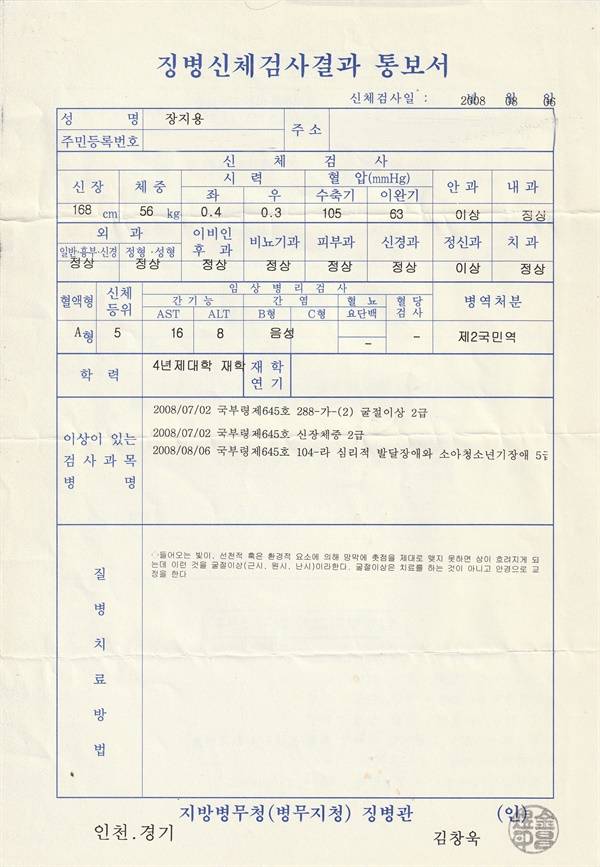 징병신체검사결과 통보서
신체검사일 : 2008 년 08 월 06 일
성 명 장지용 주 소
주민등록번호
신 체 검 사
신 장 체 중 시 력 혈 압(mmHg) 안 과 내 과
좌 우 수축기 이완기
168 cm 56 kg 0.4 0.3 105 63 이상 정상
외 과 이비인후 과 비뇨기과 피부과 신경과 정신과 치 과
일반·흉부·신경 정형·성형
정상 정상 정상 정상 정상 정상 이상 정상
혈액형 신체등위 임 상 병 리 검 사 병역처분
간 기 능 간 염 혈 뇨 혈 당
AST ALT B형 C형 요단백 검 사
A형 5 16 8 음성 – – 제2국민역
학 력 4년제대학 재학 재 학 연 기
이상이 있는
검 사 과 목
병 명
2008/07/02 국부령제645호 288-가-(2) 굴절이상 2급
2008/07/02 국부령제645호 신장체중 2급
2008/08/06 국부령제645호 104-라 심리적 발달장애와 소아청소년기장애 5급
질 병 치 료 방 법
◇들어오는 빛이, 선천적 혹은 환경적 요소에 의해 망막에 촛점을 제대로 맺지 못하면 상이 흐려지게 되
는데 이런 것을 굴절이상(근시, 원시, 난시)이라한다. 굴절이상은 치료를 하는 것이 아니고 안경으로 교
정을 한다
지방병무청(병무지청) 징병관 (인)
인천.경기 김창욱